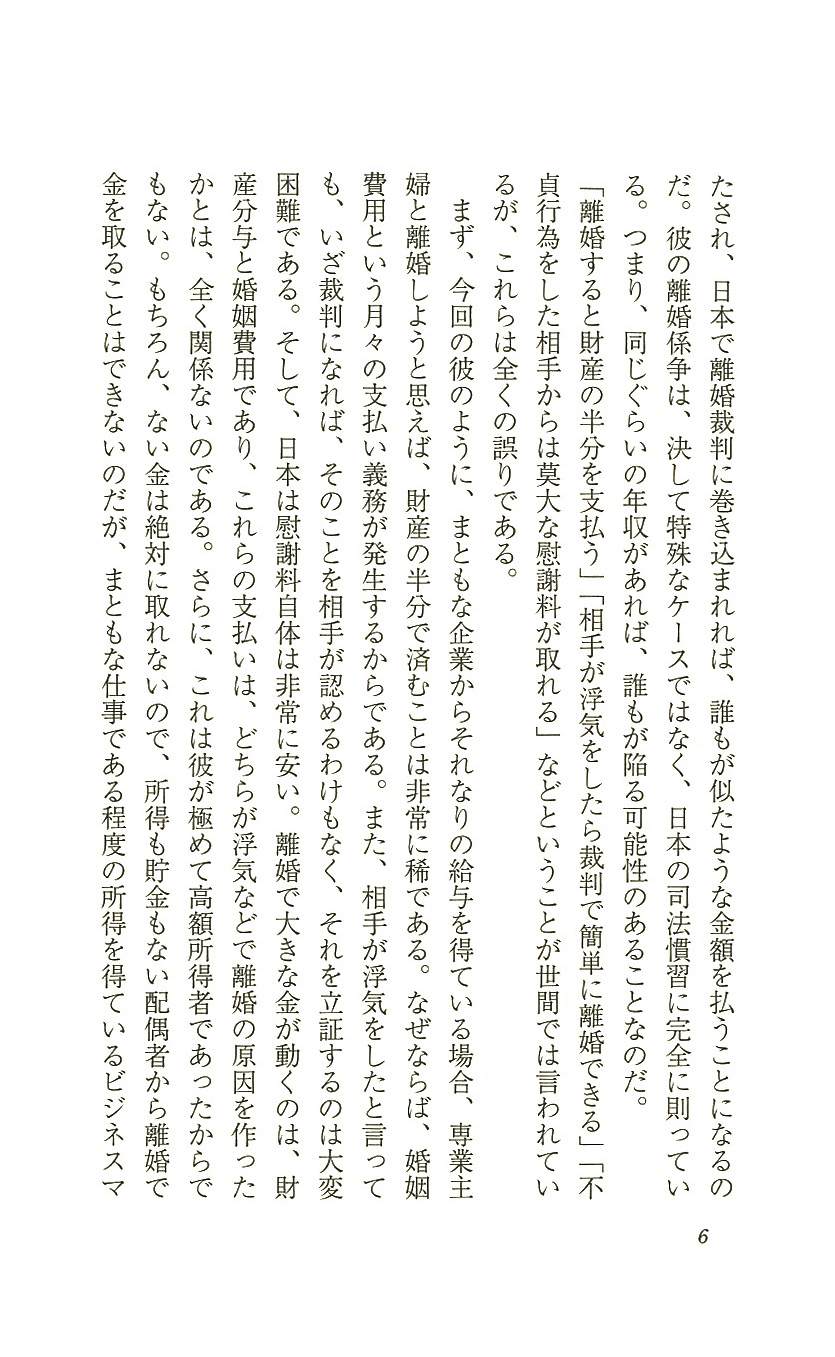 たされ、日本で離婚裁判に巻き込まれれば、誰もが似たような金額を払うことになるの
だ。彼の離婚係争は、決して特殊なケースではなく、日本の司法慣習に完全に則ってい
る。つまり、同じぐらいの年収があれば、誰もが陥る可能性のあることなのだ。
「離婚すると財産の半分を支払う」「相手が浮気をしたら裁判で簡単に離婚できる」「不
貞行為をした相手からは莫大な慰謝料が取れる」などということが世間では言われてい
るが、これらは全くの誤りである。
　まず、今回の彼のように、まともな企業からそれなりの給与を得ている場合、専業主
婦と離婚しようと思えば、財産の半分で済むことは非常に稀である。なぜならば、婚姻
費用という月々の支払い義務が発生するからである。また、相手が浮気をしたと言って
も、いざ裁判になれば、そのことを相手が認めるわけもなく、それを立証するのは大変
困難である。そして、日本は慰謝料自体は非常に安い。離婚で大きな金が動くのは、財
産分与と婚姻費用であり、これらの支払いは、どちらが浮気などで離婚の原因を作った
かとは、全く関係ないのである。さらに、これは彼が極めて高額所得者であったからで
もない。もちろん、ない金は絶対に取れないので、所得も貯金もない配偶者から離婚で
金を取ることはできないのだが、まともな仕事である程度の所得を得ているビジネスマ
6